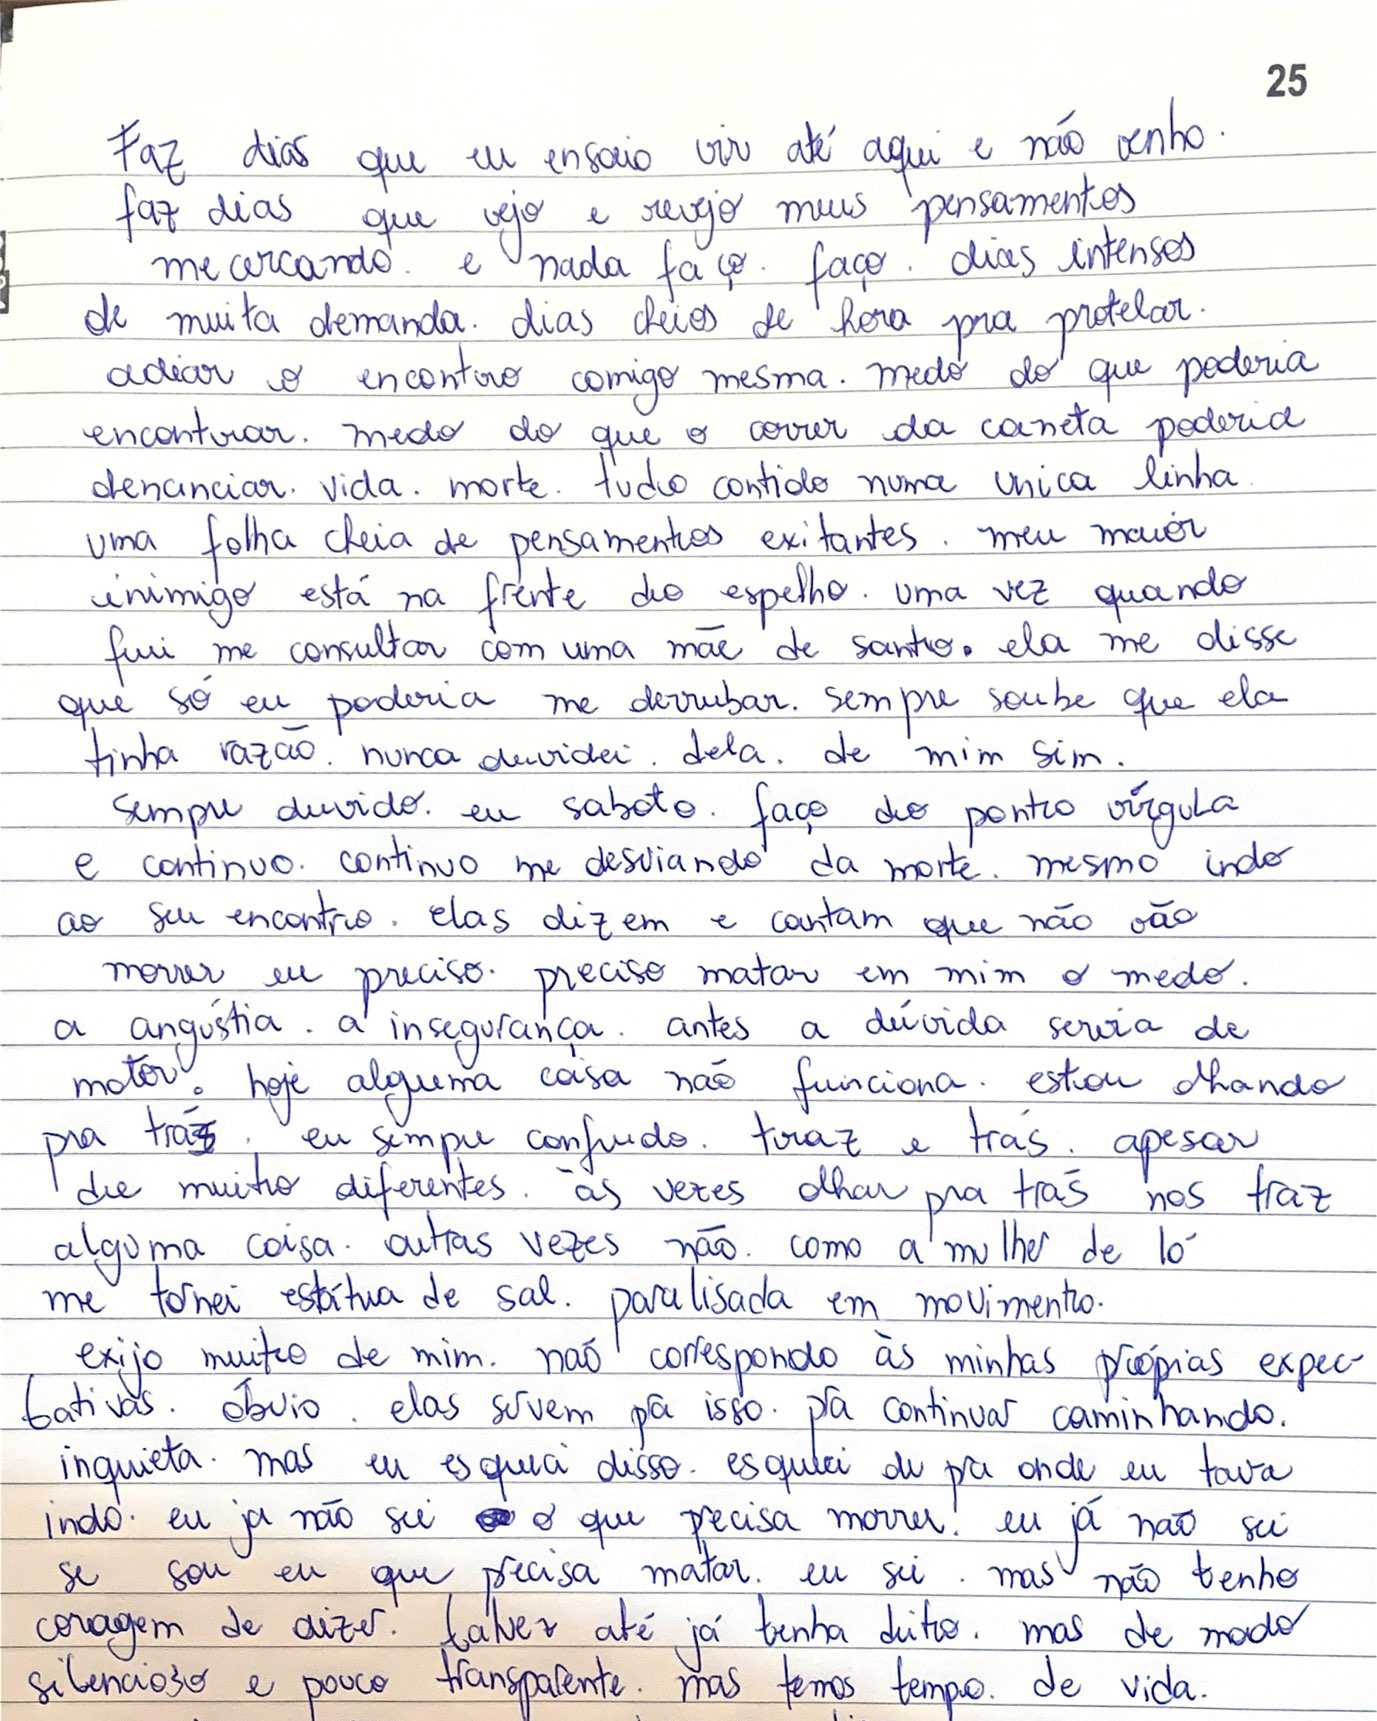 25
Faz dias que eu ensaio vir até aqui e não venho.
faz dias que vejo e revejo meus pensamentos
me cercando. e nada faço. faço. dias intensos
de muita demanda. dias cheios de hora pra protelar.
adiar o encontro comigo mesma. medo do que poderia
encontrar. medo do que o correr da caneta poderia
denunciar. vida. morte. tudo contido numa unica linha.
uma folha cheia de pensamentos exitantes. meu maior
inimigo está na frente do espelho. uma vez quando
fui me consultar com uma mãe de santo. ela me disse
que só eu poderia me derrubar. sempre soube que ela
tinha razão. nunca duvidei. dela. de mim sim.
sempre duvido. eu saboto. faço do ponto vírgula
e continuo. continuo me desviando da morte. mesmo indo
ao seu encontro. elas dizem e cantam que não vão
morrer eu preciso. preciso matar em mim o medo.
a angústia. a insegurança. antes a dúvida servia de
motor. hoje alguma coisa não funciona. estou olhando
pra trás. eu sempre confundo. traz e trás. apesar
de muito diferentes. às vezes olhar pra trás nos traz
alguma coisa. outras vezes não. como a mulher de ló
me tornei estátua de sal. paralisada em movimento.
exijo muito de mim. não correspondo às minhas próprias expec-
tativas. óbvio. elas servem pra isso. pra continuar caminhando.
inquieta. mas eu esqueci disso. esqueci de pra onde eu tava
indo. eu já não sei o que precisa morrer. eu já não sei
se sou eu que precisa matar. eu sei. mas não tenho
coragem de dizer. talvez até já tenha dito. mas de modo
silencioso e pouco transparente. mas temos tempo. de vida.